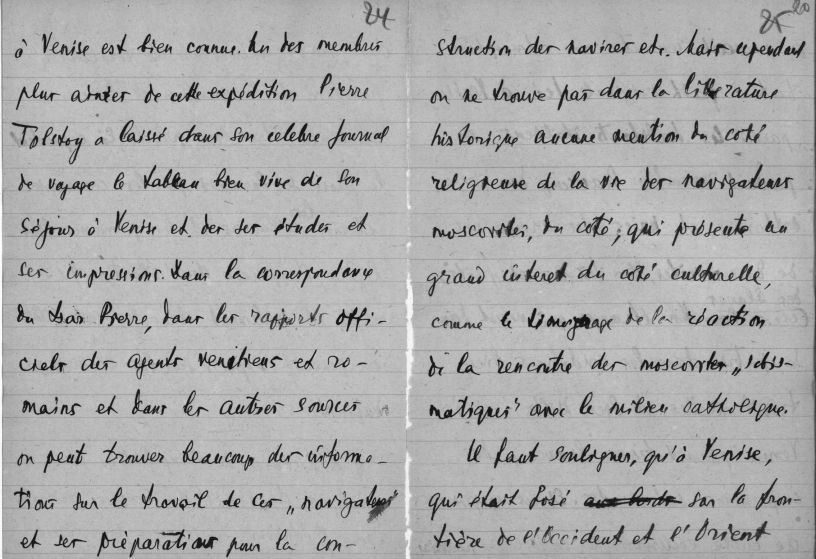 24
à Venise est bien connue. Un des membres
plus ainées de cette expédition Pierre
Tolstoy a laissé dans son celebre Journal
de voyage le tableau bien vive de son
séjour à Venise et des ses études et
ses impressions. Dans la correspondance
du tsar Pierre, dans les rapports offi-
ciels des agents venitiens et ro-
mains et dans les autres sources
on peut trouver beaucoup des informa-
tions sur le travail de ces „navigateurs"
et ses préparations pour la con-
25 20
struction des navires etc. Mais cependant
on ne trouve pas dans la litterature
historique aucune mention du coté
religieuse de la vie des navigateurs
moscovites, du coté, qui présente un
grand interet du coté culturelle,
comme le temoignage de la réaction
de la rencontre des moscovites „schis-
matiques" avec le milieu catholique.
Il faut souligner, qu'à Venise,
qui était posé sur la fron-
tière de l'Occident et l'Orient